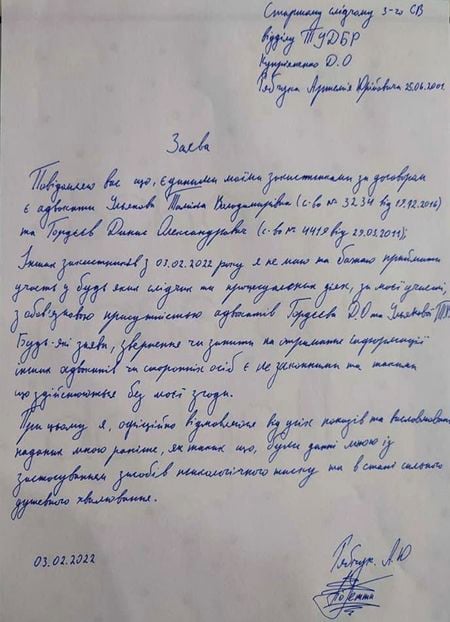 Старшому слідчому 3-го СВ
відділу ТУДБР
Купріяненко Д.О
Рябчука Артемія Юрійовича 25.06.2001.
Заява
Повідомляю вас що, єдиними моїми захисниками за договором
є адвокати Ульянова Таміла Володимирівна (с-во № 3234 від 19.12.2016)
та Гордєєв Денис Олександрович (с-во № 4419 від 29.03.2011);
Інших захисників з 03.02.2022 року я не маю та бажаю приймати
участь у будь яких слідчих та процесуальних діях, за моєї участі,
з обов'язковою присутністю адвокатів Гордєєва Д.О та Ульянової Т.
Будь-які заяви, звернення чи запити на отримання інформації
інших адвокатів чи сторонніх осіб є не законними та такими
що здійснюються без моєї згоди.
При цьому я, офіційно відмовляюся від усіх показів та висловлювань
наданих мною раніше, як таких що, були данні мною із
застосуванням засобів психологічного тиску та в стані сильного
душевного хвилювання.
03.02.2022
Рябчук. А.Ю